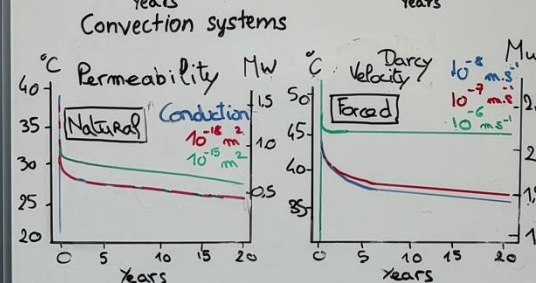 Years
Years
Convection systems
°C Permeability MW
Natural
Conduction
10⁻¹⁸ m²
10⁻¹⁵ m²
40
35
30
25
20
1.5
1.0
0.5
0 5 10 15 20
Years
°C Darcy Velocity
Forced
10⁻⁸ m.s⁻¹
10⁻⁷ m.s⁻¹
10⁻⁶ m.s⁻¹
50
45
40
35
0 5 10 15 20
Years